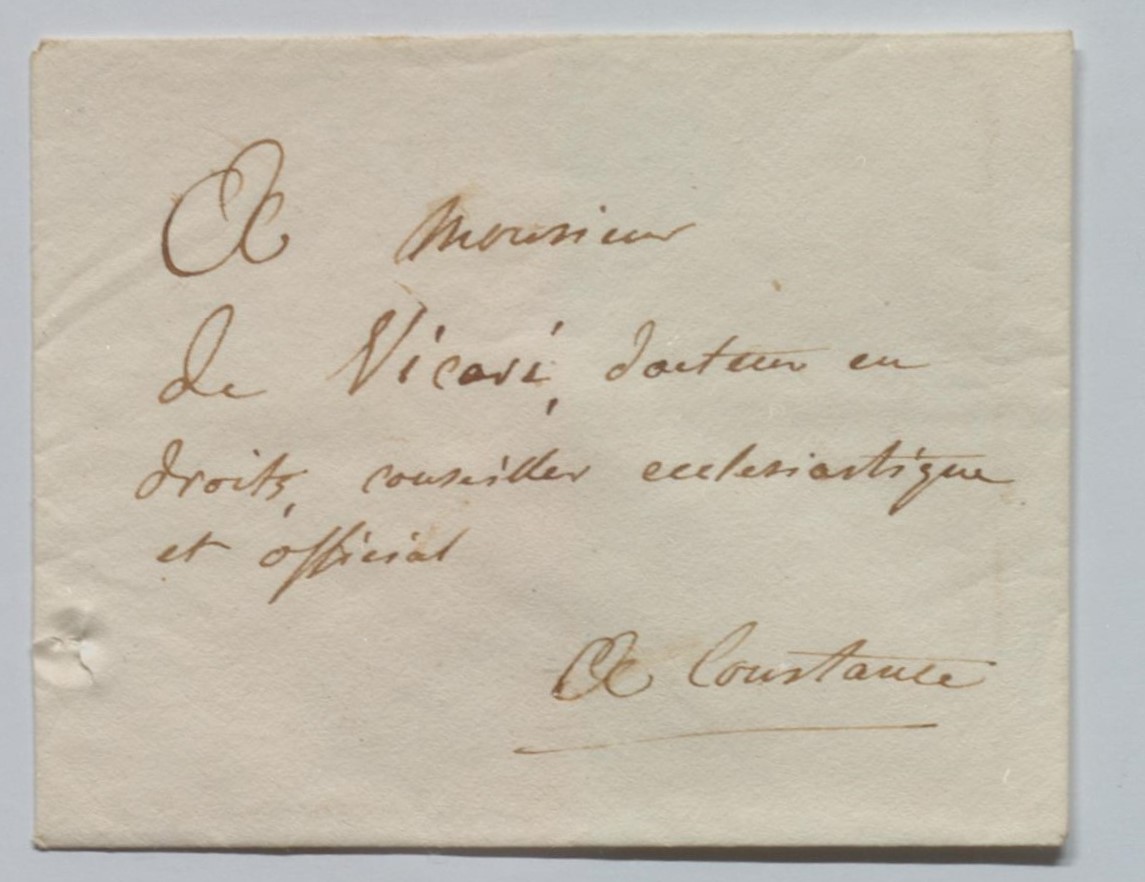 A Monsieur
de Vicari, docteur en
droits, conseiller ecclesiastique
et official
A Constance